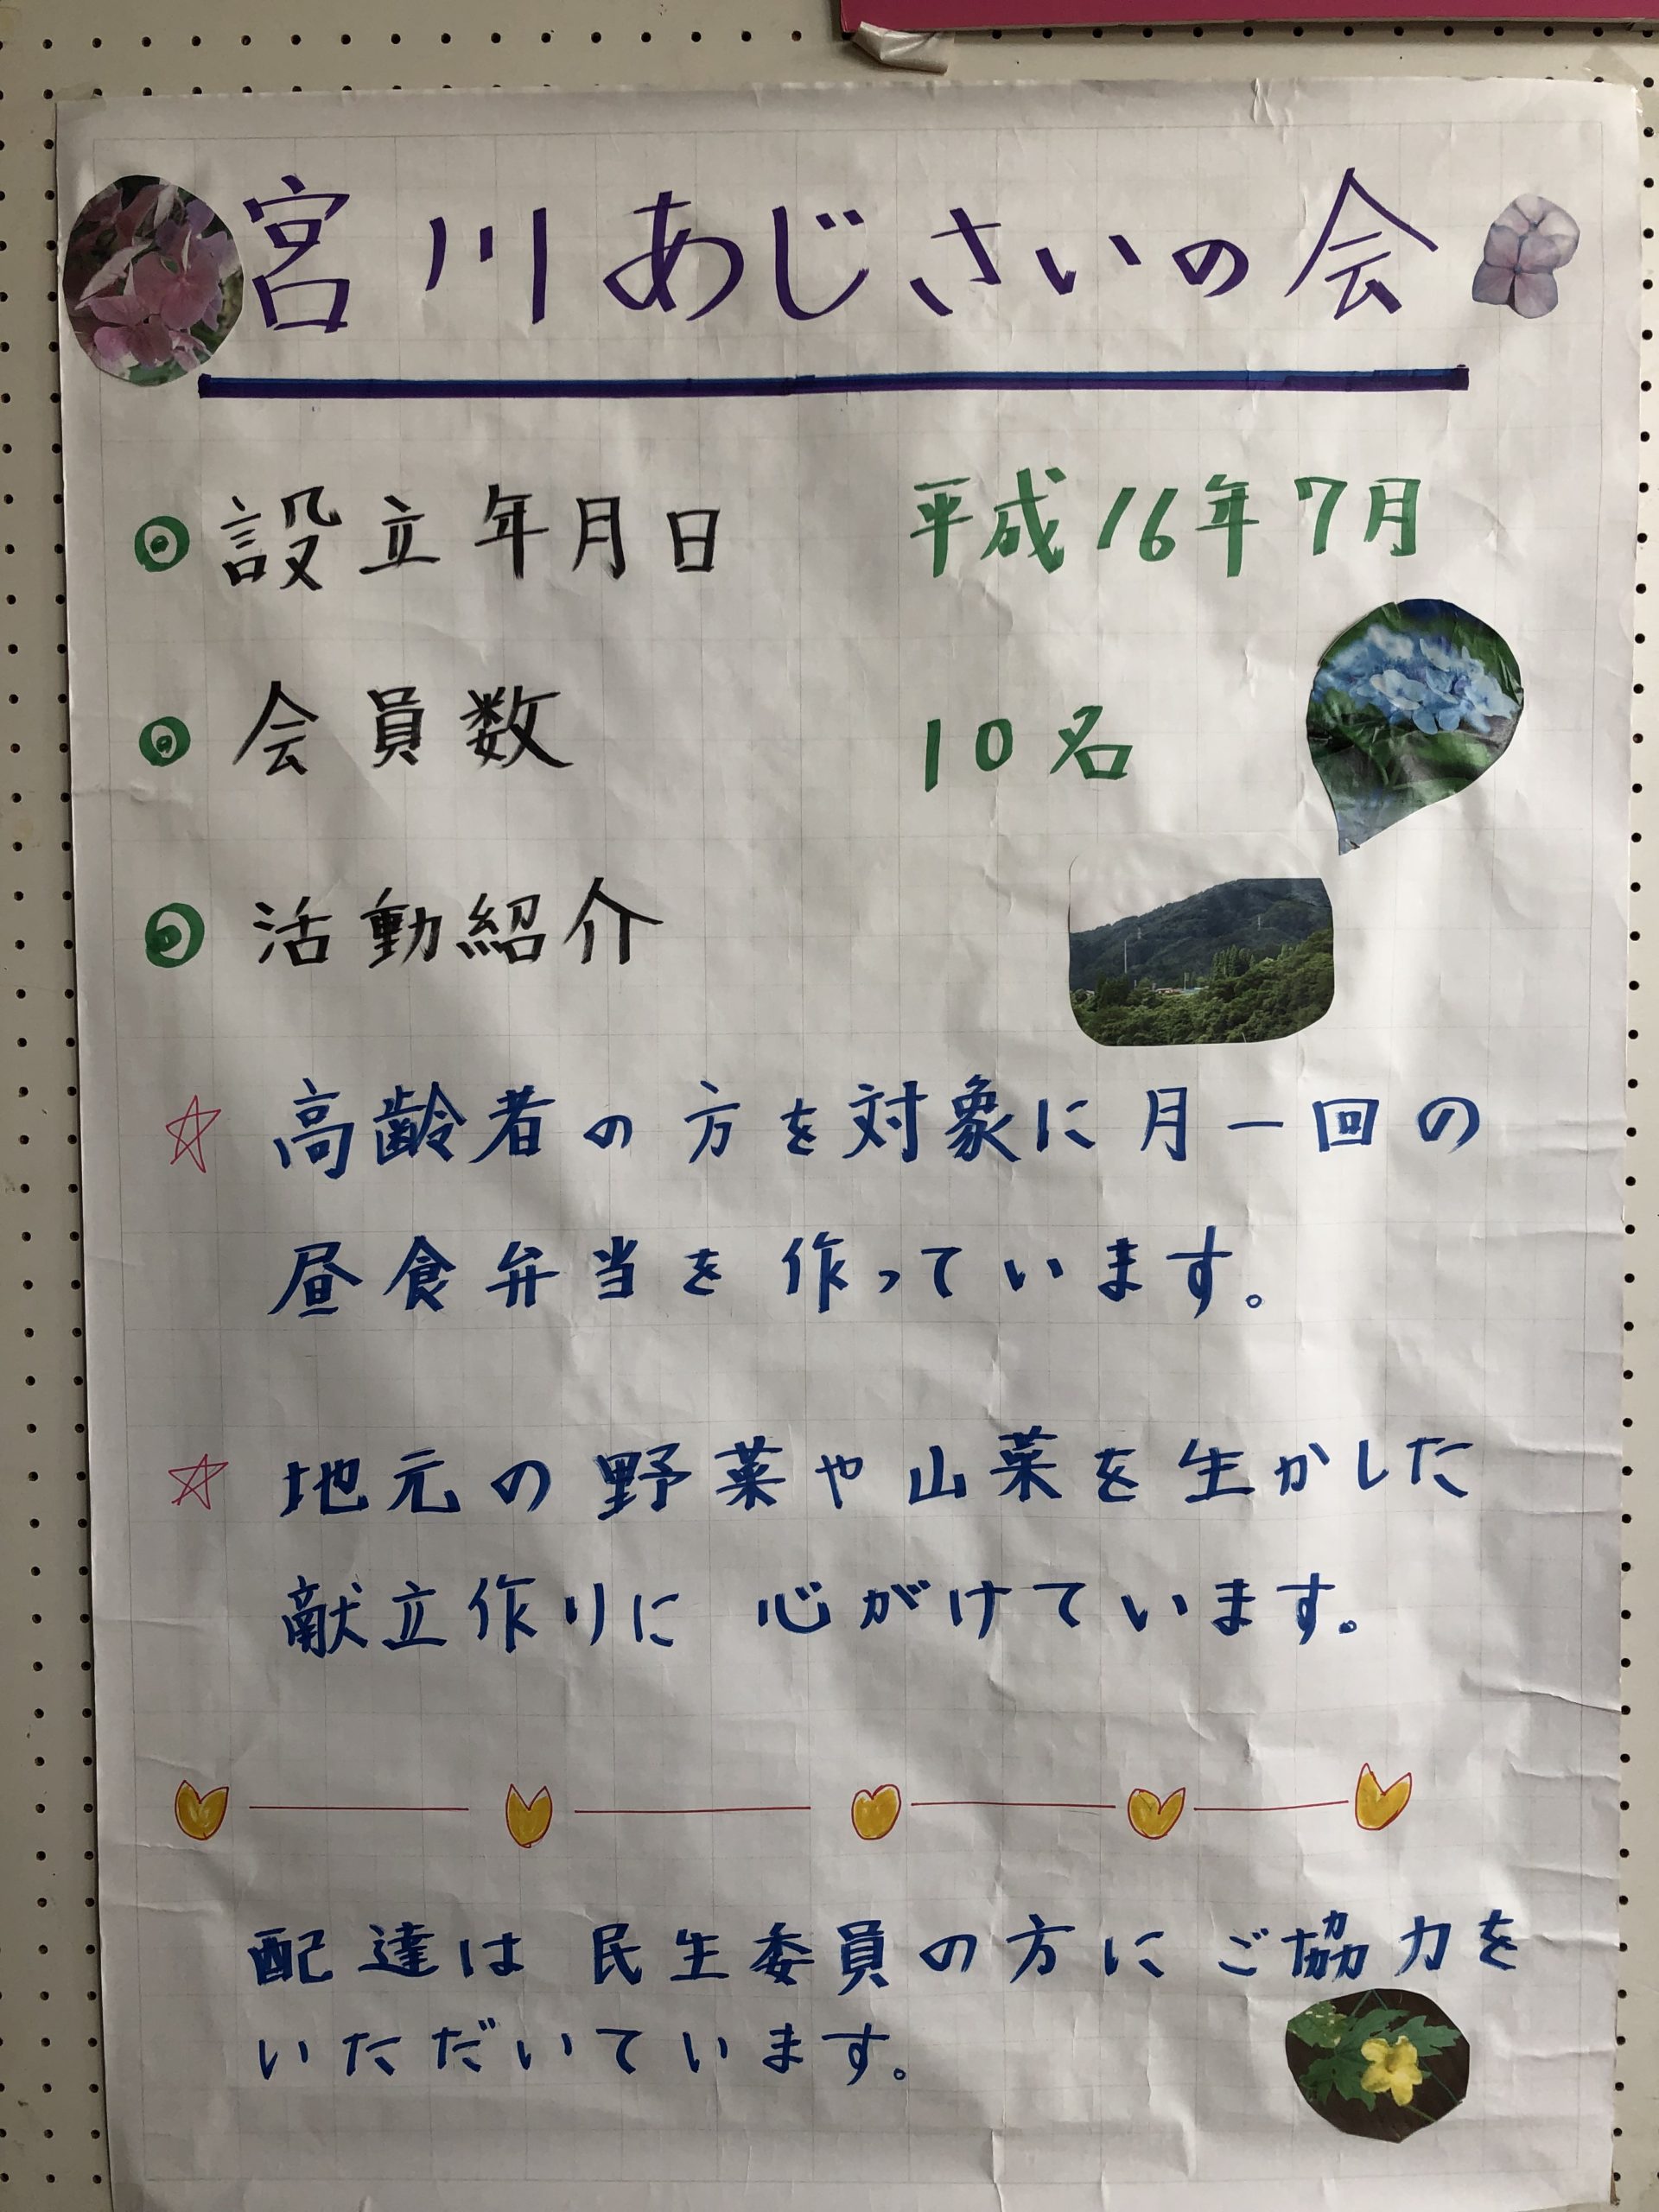 宮川あじさいの会
◎設立年月日 平成16年7月
◎会員数 10名
◎活動紹介
☆高齢者の方を対象に月一回の
昼食弁当を作っています。
☆地元の野菜や山菜を生かした
献立作りに心がけています。
配達は民生委員の方にご協力を
いただいています。